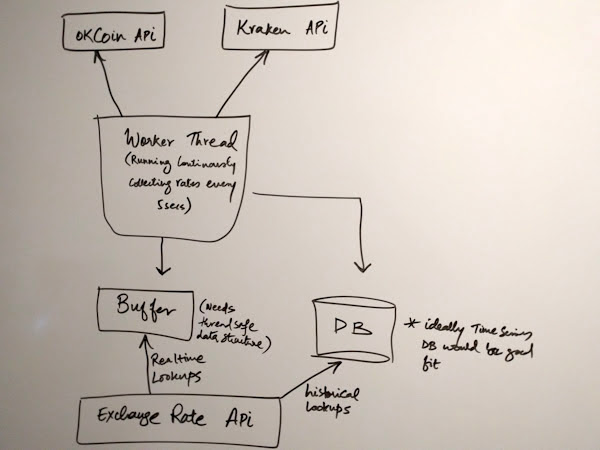 OKCoin Api
Kraken API
Worker Thread
(Running Continously
Collecting rates every
5secs)
Buffer
(Needs
threadsafe
data structure)
DB
* ideally Time Series
DB would be good
fit
Realtime
Lookups
historical
Lookups
Exchange Rate Api